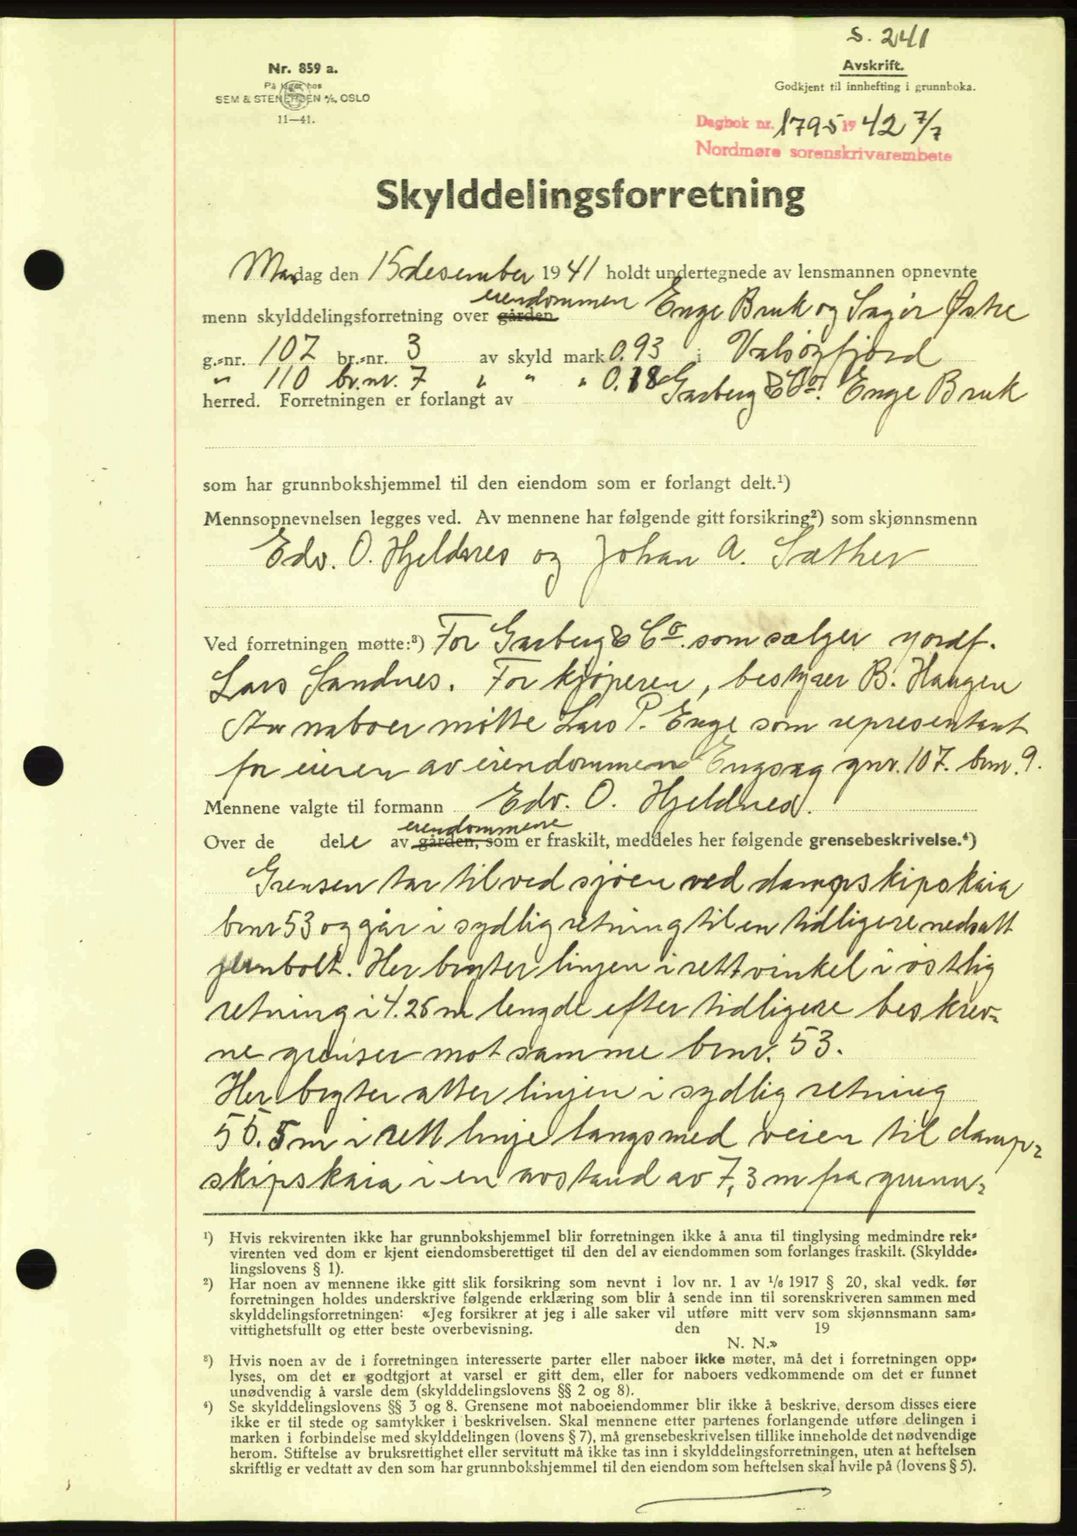 S. 241
Nr. 859 a.
På lager hos
SEM & STENERSEN A/S, OSLO
11—41.
Avskrift.
Godkjent til innhefting i grunnboka.
Dagbok nr. 1795 1942 7/7
Nordmøre sorenskrivarembete
Skylddelingsforretning
Mandag den 15 desember 1941 holdt undertegnede av lensmannen opnevnte
eiendommen
menn skylddelingsforretning over gården Enge Bruk og Sagør Østre
g.-nr. 107 br.-nr. 3 av skyld mark 0.93 i Valsøyfjord
" 110 br.nr. 7 " " " 0.18
herred. Forretningen er forlangt av Garberg & Co. Enge Bruk
som har grunnbokshjemmel til den eiendom som er forlangt delt.¹)
Mennsopnevnelsen legges ved. Av mennene har følgende gitt forsikring²) som skjønnsmenn
Edv. O. Hjeldnes og Johan A. Sæther
Ved forretningen møtte:³) For Garberg & Co. som sælger
Lars Sandnes. For kjøperen, bestyrer B. Haugen
Av naboer møtte Lars P. Enge som representant
for eieren av eiendommen Engsag gnr. 107. brnr. 9.
Mennene valgte til formann Edv. O. Hjeldnes.
eiendommene
Over de dele av gården, som er fraskilt, meddeles her følgende grensebeskrivelse.⁴)
Grensen tar til ved sjøen ved dampskipskaia
brnr 53 og går i sydlig retning til en tidligere nedsatt
jernbolt. Her bryter linjen i rett vinkel i østlig
retning i 4.25 m lengde efter tidligere beskrev-
ne grenser mot samme brnr. 53.
Her bryter atter linjen i sydlig retning
55.5 m i rett linje langsmed veien til damp-
skipskaia i en avstand av 7,3 m fra grunn-
¹) Hvis rekvirenten ikke har grunnbokshjemmel blir forretningen ikke å anta til tinglysing medmindre rek-
virenten ved dom er kjent eiendomsberettiget til den del av eiendommen som forlanges fraskilt. (Skyldde-
lingslovens § 1).
²) Har noen av mennene ikke gitt slik forsikring som nevnt i lov nr. 1 av 1/6 1917 § 20, skal vedk. før
forretningen holdes underskrive følgende erklæring som blir å sende inn til sorenskriveren sammen med
skylddelingsforretningen: «Jeg forsikrer at jeg i alle saker vil utføre mitt verv som skjønnsmann sam-
vittighetsfullt og etter beste overbevisning. den 19
N. N.»
³) Hvis noen av de i forretningen interesserte parter eller naboer ikke møter, må det i forretningen opp-
lyses, om det er godtgjort at varsel er gitt dem, eller for naboers vedkommende om det er funnet
unødvendig å varsle dem (skylddelingslovens §§ 2 og 8).
⁴) Se skylddelingslovens §§ 3 og 8. Grensene mot naboeiendommer blir ikke å beskrive, dersom disses eiere
ikke er til stede og samtykker i beskrivelsen. Skal mennene etter partenes forlangende utføre delingen i
marken i forbindelse med skylddelingen (lovens § 7), må grensebeskrivelsen tillike inneholde det nødvendige
herom. Stiftelse av bruksrettighet eller servitutt må ikke tas inn i skylddelingsforretningen, uten at heftelsen
skriftlig er vedtatt av den som har grunnbokshjemmel til den eiendom som heftelsen skal hvile på (lovens § 5).